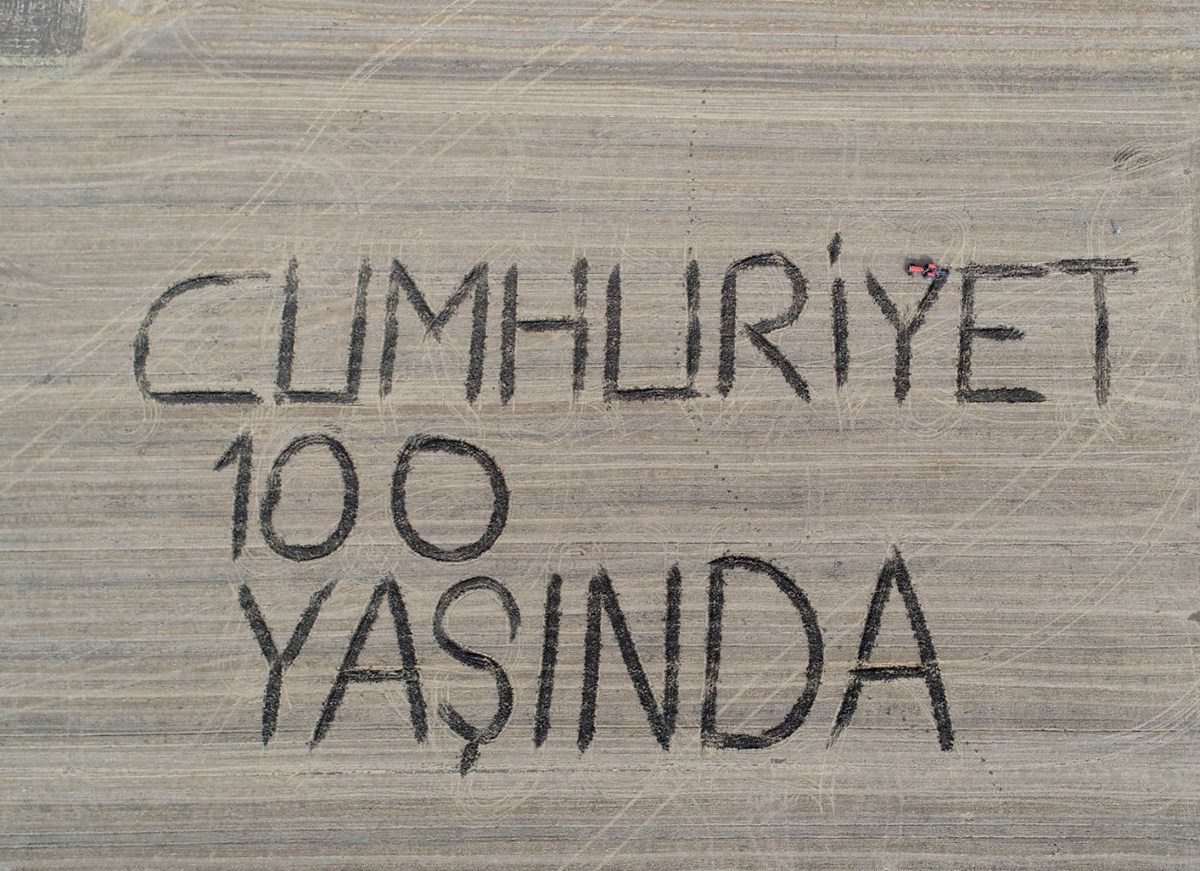 CUMHURİYET
100
YAŞINDA